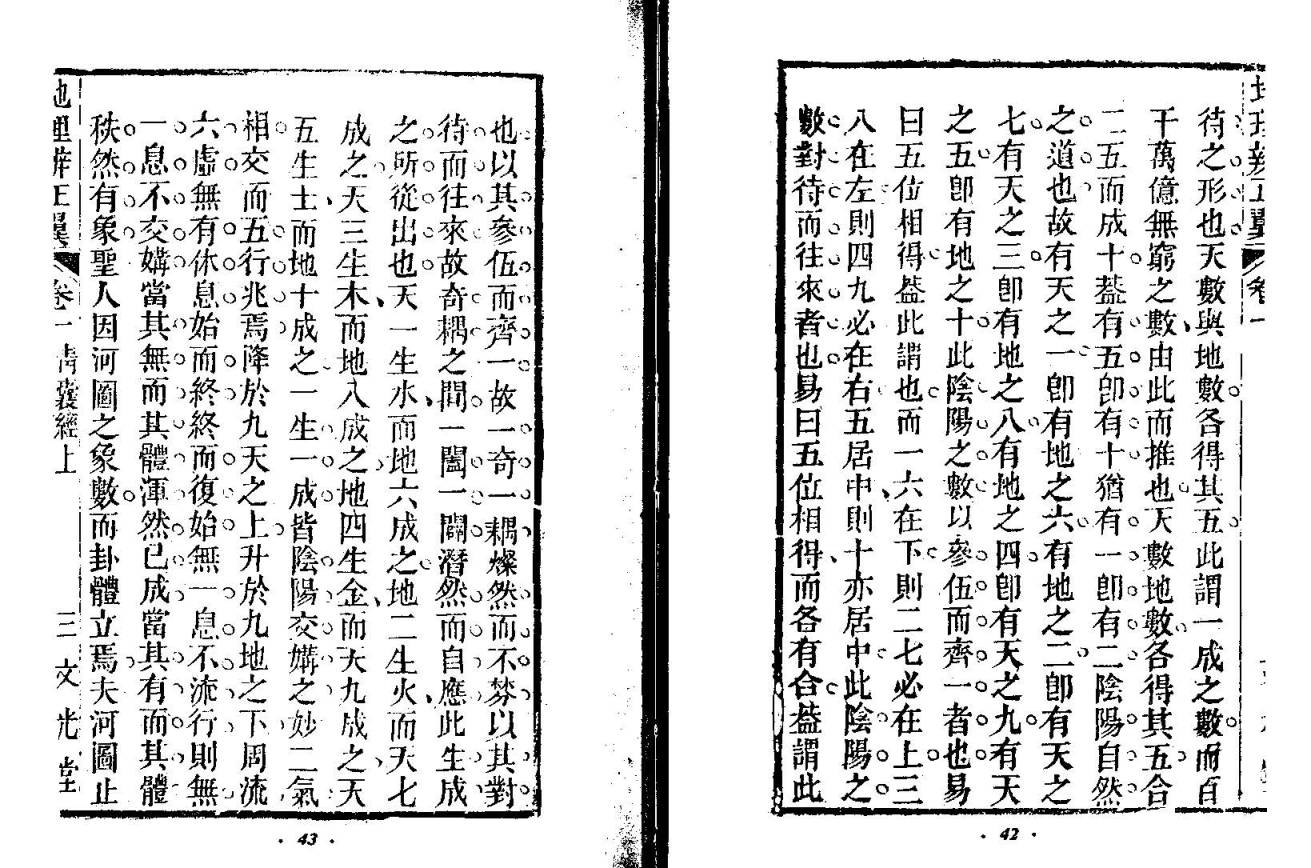 地理辨正翼
卷一
待之形也天數與地數各得其五此謂一成之數而百
千萬億無窮之數由此而推也天數地數各得其五合
二五而成十葢有五卽有十猶有一卽有二陰陽自然
之道也故有天之一卽有地之六有地之二卽有天之
七有天之三卽有地之八有地之四卽有天之九有天
之五卽有地之十此陰陽之數以參伍而齊一者也易
曰五位相得葢此謂也而一六在下則二七必在上三
八在左則四九必在右五居中則十亦居中此陰陽之
數對待而往來者也易曰五位相得而各有合葢謂此
· 42 ·
也以其參伍而齊一故一奇一耦燦然而不棼以其對
待而往來故奇耦之間一闔一闢潛然而自應此生成
之所從出也天一生水而地六成之地二生火而天七
成之天三生木而地八成之地四生金而天九成之天
五生土而地十成之一生一成皆陰陽交媾之妙二氣
相交而五行兆焉降於九天之上升於九地之下周流
六虛無有休息始而終終而復始無一息不流行則無
一息不交媾當其無而其體渾然已成當其有而其體
秩然有象聖人因河圖之象數而卦體立焉夫河圖止
地理辨正翼
卷一 靑囊經上
三 文光堂
· 43 ·